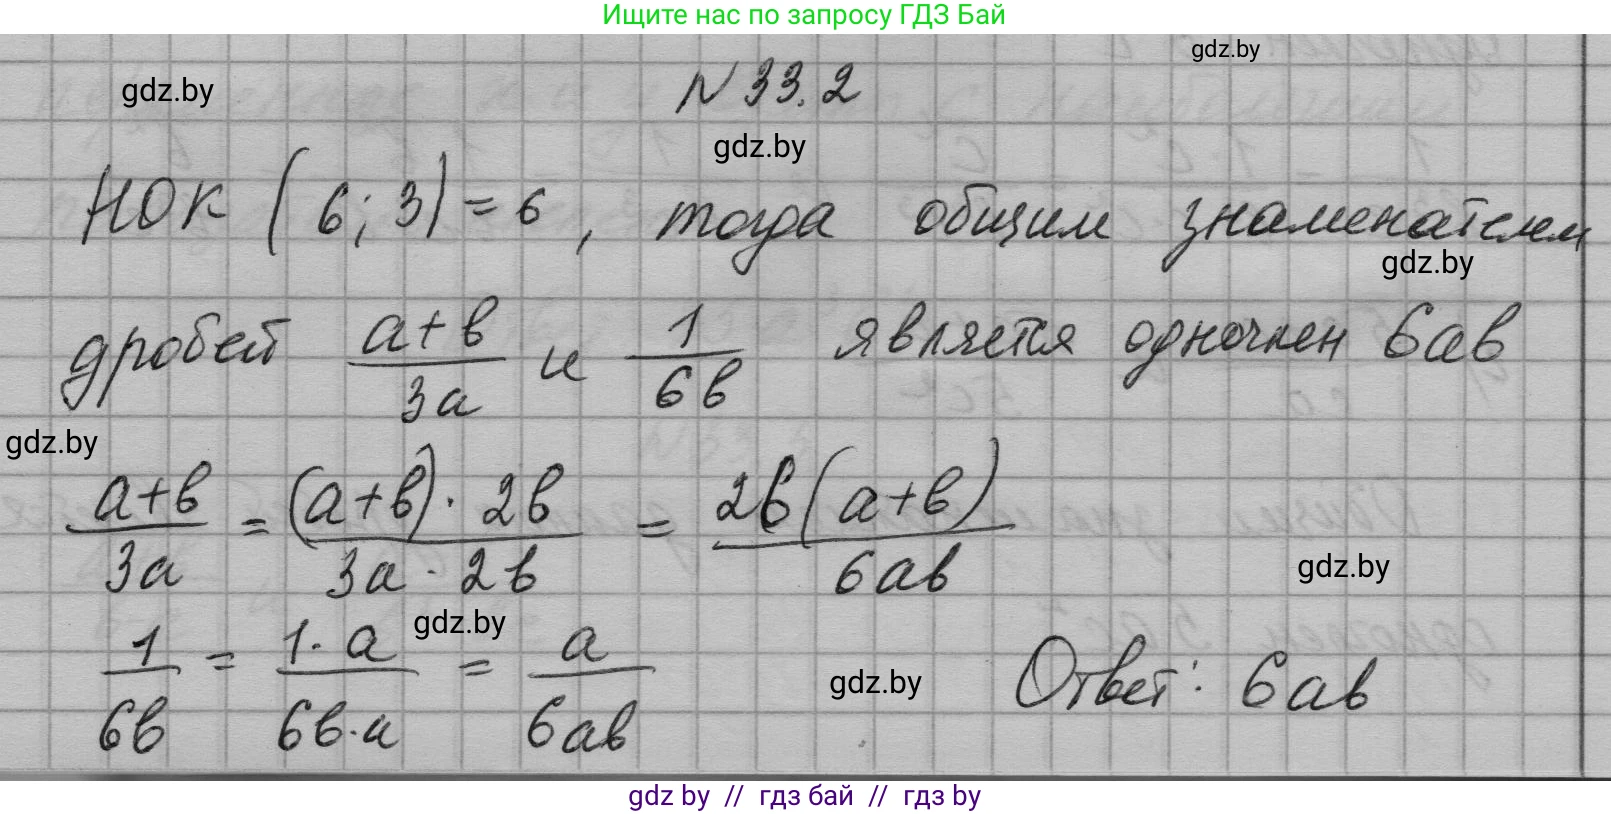 Ищите нас по запросу ГДЗ Бай
gdz.by
gdz.by
N 33.2
gdz.by
НОК (6; 3) = 6, тогда общим знаменателем
gdz.by
дробей (a+b)/(3a) и 1/(6b) является одночлен 6ab
gdz.by
(a+b)/(3a) = ((a+b) · 2b)/(3a · 2b) = (2b(a+b))/(6ab)
gdz.by
gdz.by
1/(6b) = (1 · a)/(6b · a) = a/(6ab)
gdz.by
Ответ: 6ab
gdz by // гдз бай // гдз by